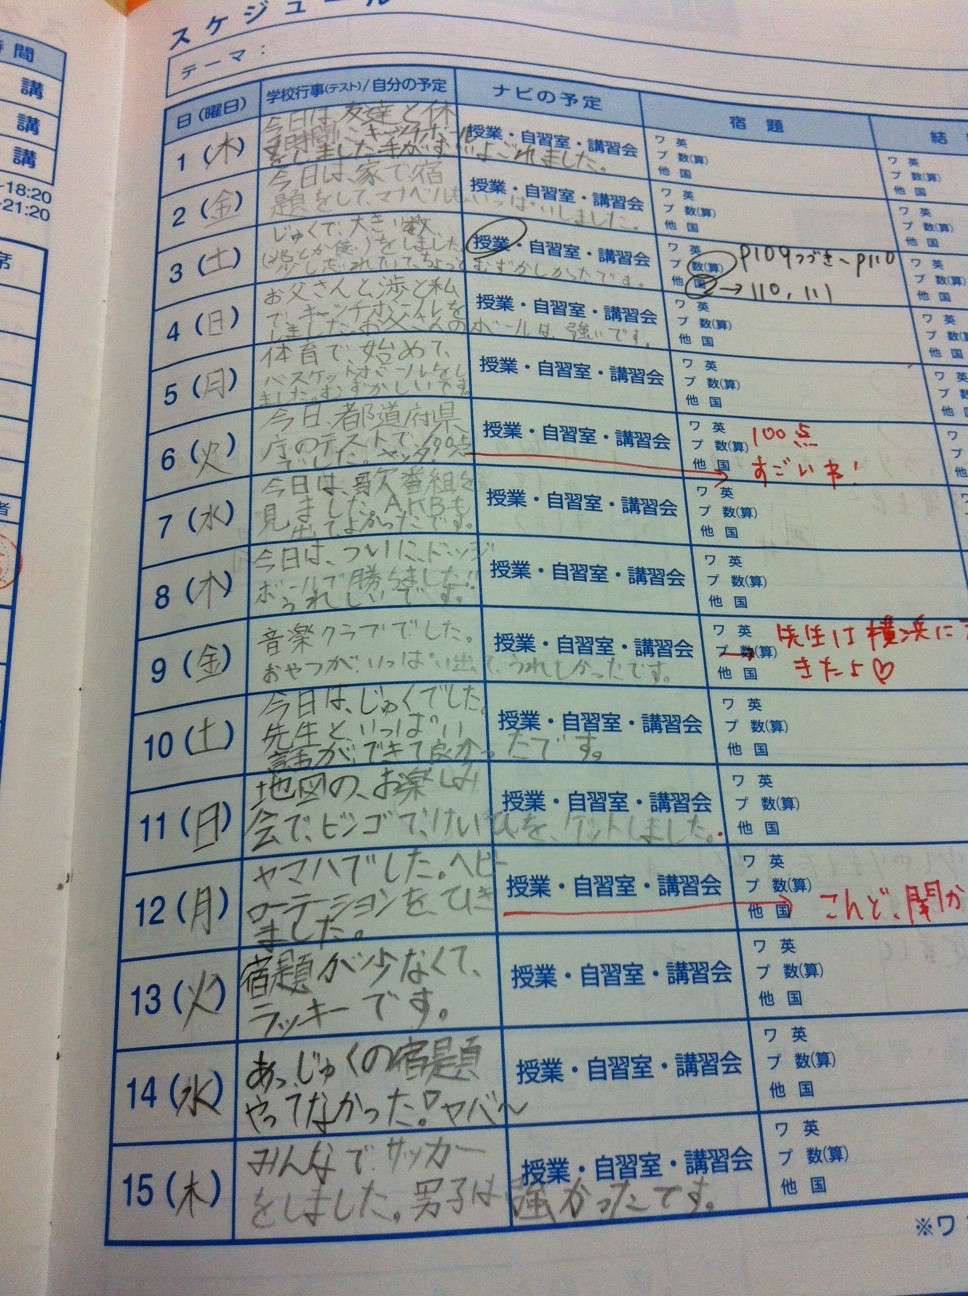 スケジュール
時間
講
講
講
-18:20
-21:20
席
者
テーマ：
日(曜日) 学校行事(テスト)/自分の予定 ナビの予定 宿題 結
1(木) 今日は、友達と休
にキャッチボール
しました。手がすごいよごれました。
授業・自習室・講習会
ワ 英
プ 数(算)
他 国
2(金) 今日は、家で宿
題をして、マナベルもいっぱいしました。
授業・自習室・講習会
ワ 英
プ 数(算)
他 国
3(土) じゅくで、大きい数、
(兆とか億)をしました。
少しだれていて、ちょっとむずかしかったです。
授業・自習室・講習会
ワ 英
プ 数(算) P109つづき〜P110
他 国 →110, 111
4(日) お父さんと渉と私
で、キャッチボールを
しました。お父さんのボールは、強いです。
授業・自習室・講習会
ワ 英
プ 数(算)
他 国
5(月) 体育で、始めて、
バスケットボールをし
ました。むずかしいです。
授業・自習室・講習会
ワ 英
プ 数(算)
他 国
6(火) 今日、都道府県
庁のテストで、100点
でした。ヤッター
授業・自習室・講習会
ワ 英 100点
プ 数(算)
他 国 すごいネ!
7(水) 今日は、歌番組を
見ました。AKBも
出てよかったです。
授業・自習室・講習会
ワ 英
プ 数(算)
他 国
8(木) 今日は、ついに、ドッジ
ボールで勝ちました!!
うれしいです。
授業・自習室・講習会
ワ 英
プ 数(算)
他 国
9(金) 音楽クラブでした。
おやつが、いっぱい出て、うれしかったです。
授業・自習室・講習会
ワ 英 先生は横浜に
プ 数(算) きたよ♡
他 国
10(土) 今日は、じゅくでした。
先生と、いっぱい
話ができて良かったです。
授業・自習室・講習会
ワ 英
プ 数(算)
他 国
11(日) 地図の、お楽しみ
会で、ビンゴで、けいひんを、ゲットしました。
授業・自習室・講習会
ワ 英
プ 数(算)
他 国
12(月) ヤマハでした。ヘビ
ローテーションを、ひき
ました。
授業・自習室・講習会
ワ 英
プ 数(算)
他 国 こんど、聞か
13(火) 宿題が少なくて、
ラッキーです。
授業・自習室・講習会
ワ 英
プ 数(算)
他 国
14(水) あっ、じゅくの宿題
やってなかった。ヤバ〜
授業・自習室・講習会
ワ 英
プ 数(算)
他 国
15(木) みんなで、サッカー
をしました。男子は強かったです。
授業・自習室・講習会
ワ 英
プ 数(算)
他 国
※ワ